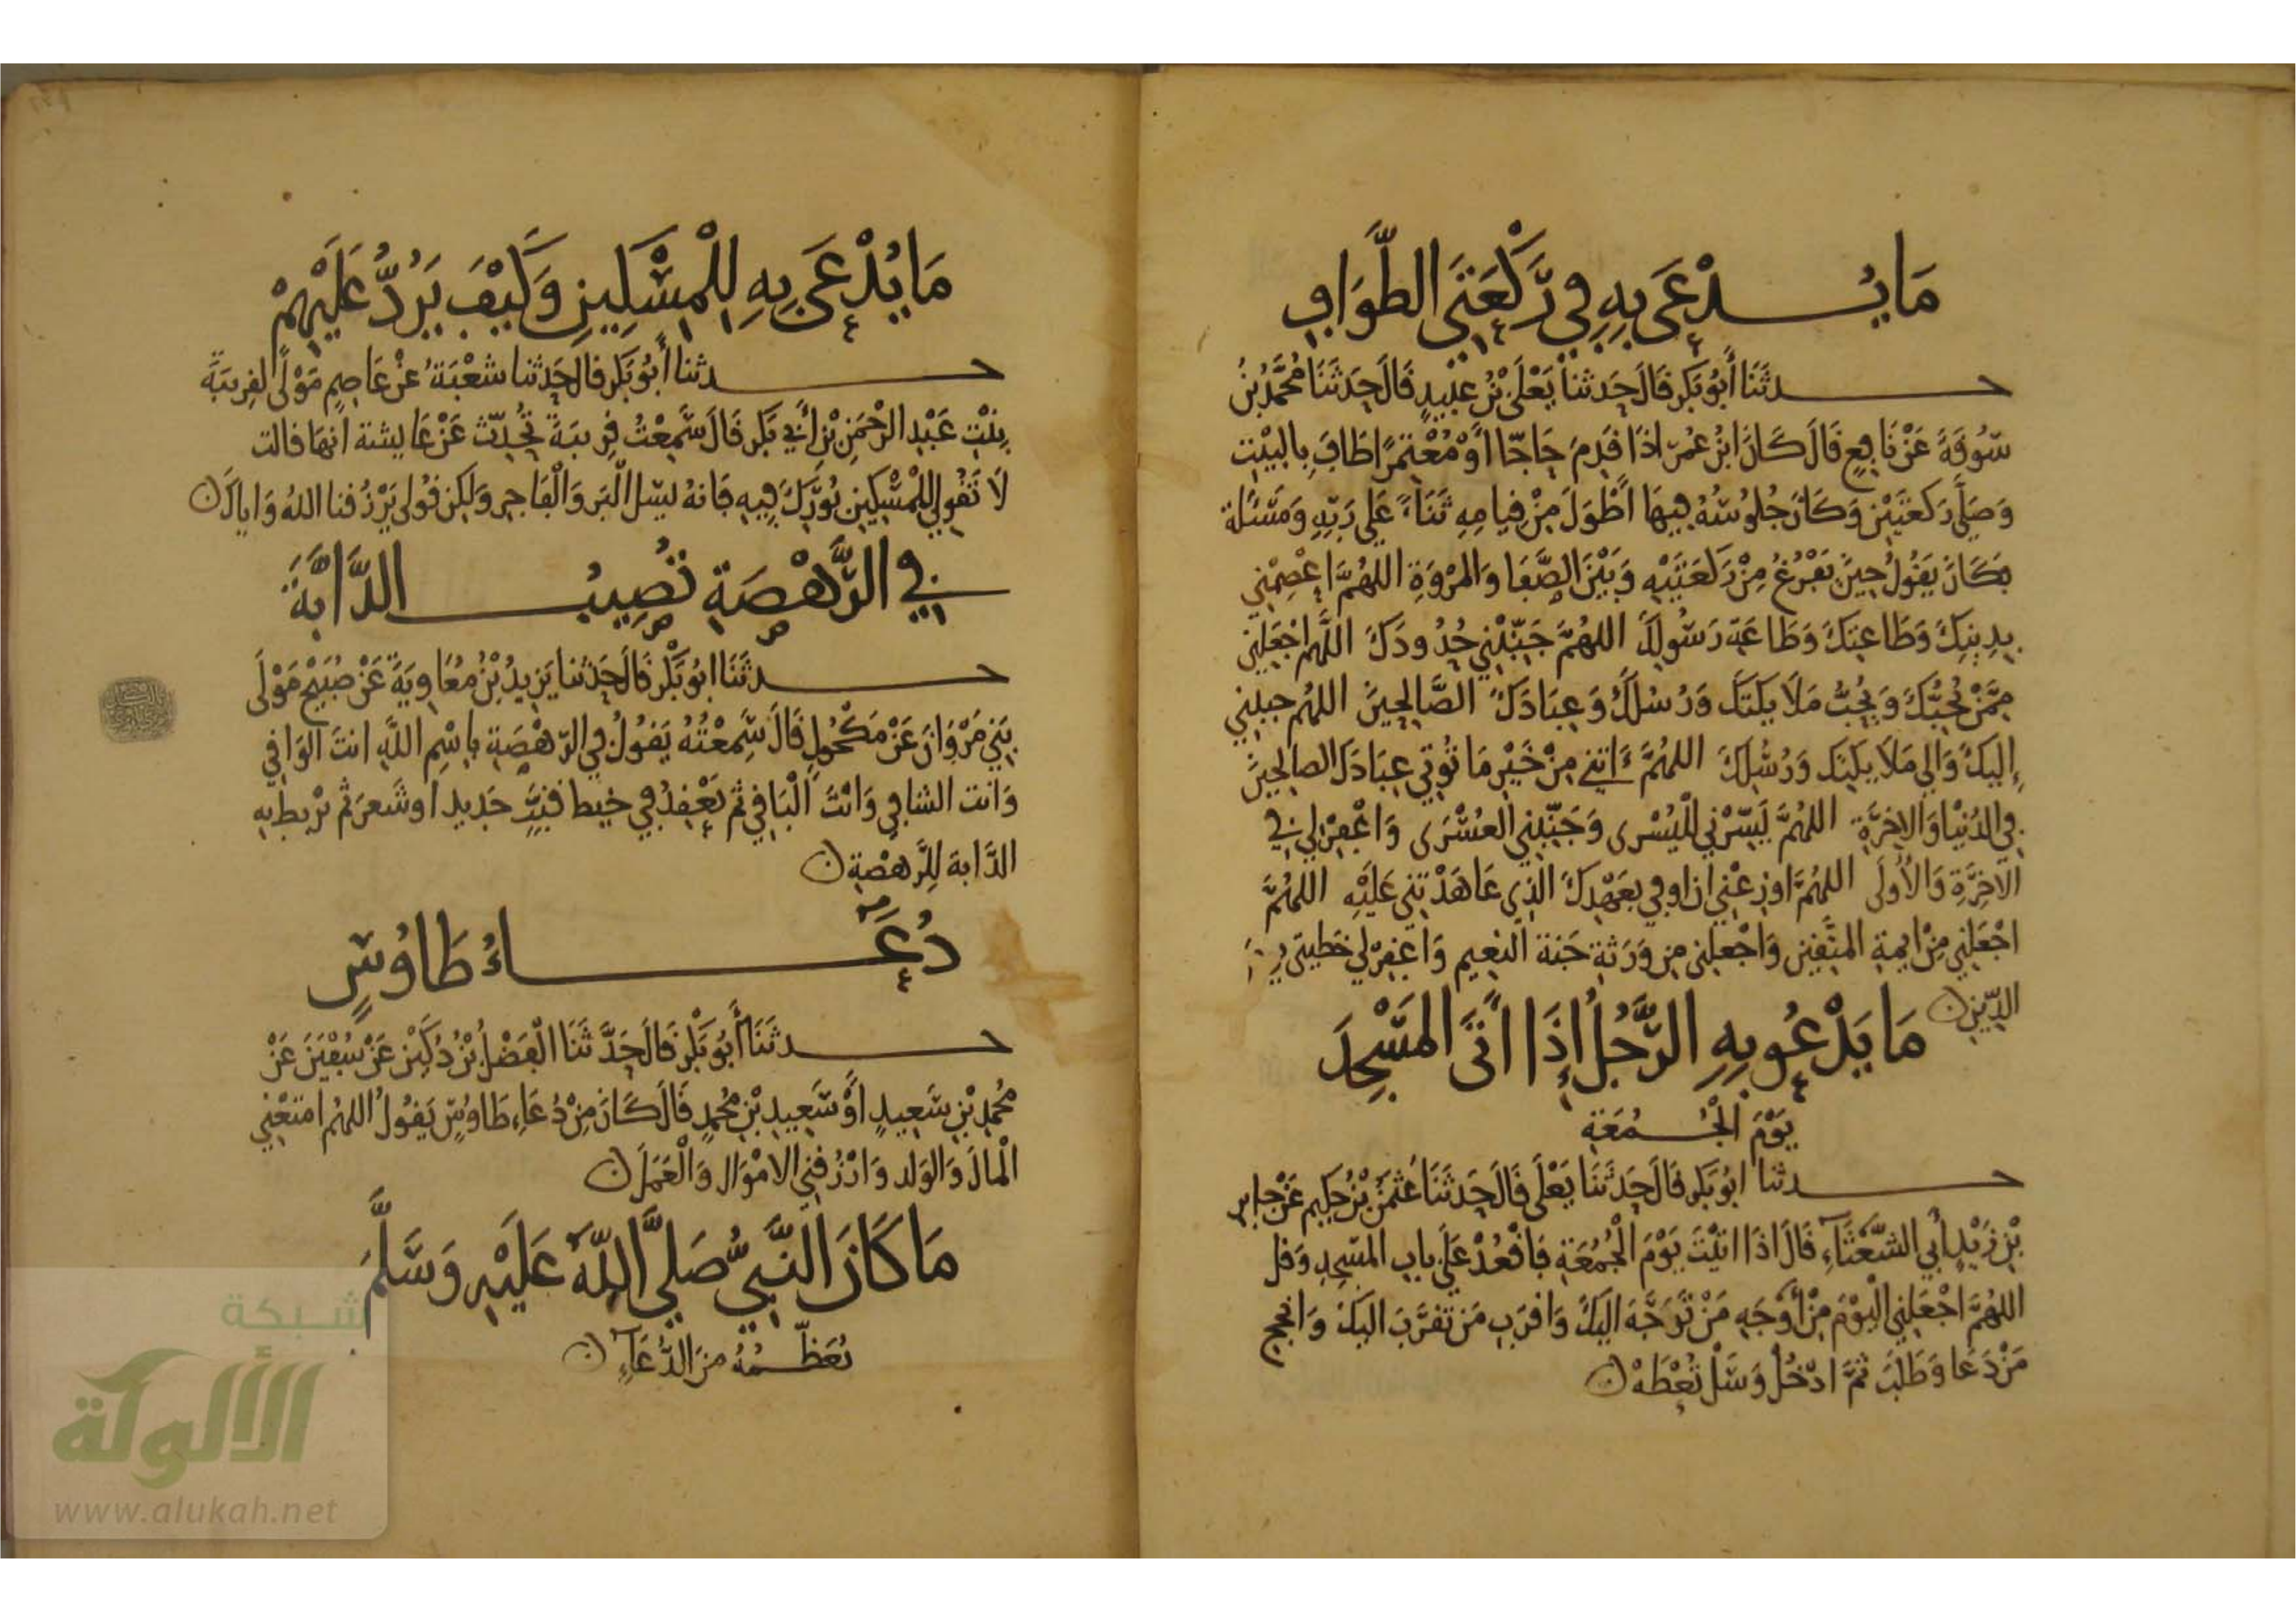 مَا يُدْعَى بِهِ فِي رَكْعَتَيِ الطَّوَافِ
حدثَنَا أَبُو بَكرٍ قَالَ حَدثنا يَعْلَى بْنُ عُبَيْدٍ قَالَ حَدثَنَا مُحَمَّدُ بْنُ
سُوقَةَ عَنْ نَافِعٍ قَالَ كَانَ ابْنُ عُمَرَ اذَا قَدِمَ حَاجّا أَوْ مُعْتَمِرًا طَافَ بِالبَيْتِ
وَصَلَّى رَكعَتَيْنِ وَكَانَ جُلُوسُهُ فِيهَا أَطْوَلَ مِنْ قِيامِهِ ثَنَاءً عَلَى رَبِّهِ وَمَسْئَلة
فكَانَ يَقُولُ حِينَ يَفْرُغُ مِنْ رَكْعَتَيْهِ وَبَيْنَ الصَّفَا وَالمَرْوَةِ اللهُمَّ اعْصِمْنِي
بِدِينِكَ وَطَاعَتِكَ وَطَاعَةِ رَسُولِكَ اللهُمَّ جَنِّبْنِي حُدُودَكَ اللَّهُم اجْعَلنِي
مِمَّنْ يُحِبُّكَ وَيُحِبُّ مَلَايِكَتَكَ وَرُسُلَكَ وَعِبَادَكَ الصَّالِحِينَ اللهُم حببنِي
إِلَيكَ وَالَى مَلَايِكَتِكَ وَرُسُلِكَ اللهُمَّ ءَاتِنِي مِنْ خَيْرِ مَا تُوتِي عِبَادَكَ الصالِحِينَ
فِي الدُنْيَا وَالاخِرَةِ اللهُمَّ يَسِّرْنِي للْيُسْرى وَجَنِّبْنِي العُسْرَى وَاغْفِرْ لِي فِي
الآخِرَةِ وَالأُولَى اللهُمَّ اوزِعْنِي ان اوفِي بعَهْدِكَ الذِي عَاهَدْتَنِي عَلَيْهِ اللهُمَّ
اجْعَلنِي مِنْ ايِمةِ المتَّقِينَ وَاجْعلنِى مِن وَرَثةِ جَنة النعِيم وَاغفِرْ لِي خَطيتِى يوم
الدِّينِ ن
مَا يَدْعُو بِهِ الرَّجُلُ إِذَا أَتَى المَسْجِدَ
يَوْمَ الْجُمُعَةِ
حدثنا ابُو بَكرٍ قَالَ حَدثَنَا يَعْلَى قَالَ حَدثَنَا عُثْمَنُ بْنُ حَكِيمٍ عَنْ جابر
بْنِ زَيْدٍ أَبِي الشَّعْثَآءِ قَالَ اذَا اتَيْتَ يَوْمَ الْجُمُعَةِ فَاقْعُدْ عَلَى بابِ المَسْجِدِ وَقل
اللهُمَّ اجْعَلنِي الْيَوْمَ مِنْ أَوْجَهِ مَنْ تَوَجَّهَ الَيكَ وَاقرَبِ مَن تقرَّبَ الَيكَ وَانجحِ
مَنْ دَعَا وَطَلَبَ ثُمَّ ادْخُلْ وَسَلْ تُعْطَهْ ن
مَا يُدْعَى بِهِ لِلْمِسْكِينِ وَكَيْفَ يَرُدُّ عَلَيْهِمْ
حدثنا أَبُو بَكرٍ قال حَدثنا شعْبَةُ عَنْ عَاصِمٍ مَوْلًى لقرِيبَةَ
بِنْتِ عَبْدِ الرَّحْمَنِ بْنِ أَبِي بَكرٍ قَالَ سَمِعْتُ قرِيبَةَ تُحَدِّث عَنْ عَايشة انهَا قالت
لَا تقُولِي للْمِسْكِينِ بُورِكَ فِيهِ فَانهُ يسَل الْبَر وَالْفَاجِر وَلكِن قُولى يَرْزُقنا اللهُ وَاياكَ ن
فِي الرَّهْصَةِ تُصِيبُ الدَّابَّةَ
حدثَنَا ابُو بَكْرٍ قَالَ حَدثنا يَزِيدُ بْنُ مُعَاوِيَةَ عَنْ صُبَيْحٍ مَوْلَى
بَنِي مَرْوَانَ عَنْ مَكْحُولٍ قَالَ سَمِعْتُهُ يَقُولُ فِي الرَّهْصَةِ بِاسْمِ اللَّهِ انتَ الوَاقِي
وَانت الشافِي وَانْتَ الْبَاقِي ثم يَعْقِدُ فِي خيط قنب جَدِيد اوشَعرَ ثم يرْبط به
الدَّابة لِلرَّهْصَةِ ن
دُعَاءُ طَاوُسٍ
حدثَنَا أَبُو بَكْرٍ قَالَ حَدَّثَنَا الْفَضْلُ بْنُ دُكَيْنٍ عَنْ سُفْيَنَ عَنْ
مُحَمدِ بْنِ سَعِيدٍ أَوْ سَعِيدِ بْنِ مُحَمدٍ قَالَ كَانَ مِنْ دُعَاءِ طَاوُسٍ يَقُولُ اللهُم امنَعْنِي
الْمالَ وَالوَلدَ وَارْزُقنِي الامْوَال وَالْعَمَلَ ن
مَا كَانَ النَّبِيُّ صَلَى اللَّهُ عَلَيْهِ وَسَلَّمَ
يُعَظِّمُهُ مِنَ الدُّعَآءِ ن
شبكة
الألوكة
www.alukah.net